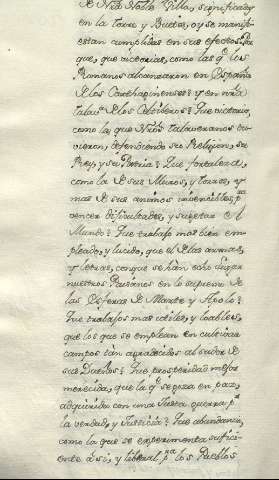 de Ntra Noble Villa, significadas
en la torre y Bueies, oy se manifi-
estan cumplidas en sus efectos. Por
que, que victorias, como las q los
Romanos alcanzaron en España
de los Carthaginenses? y en vna
talava de los Celtiberos? Que victoria,
como la que Ntros talaveranos tu
vieron, defendiendo su Religion, su
Rey, y su Patria? Que fortaleza,
como la de sus Muros, y torres, y
mas de sus animos invencibles, pa
vencer dificultades, y sujetar el
Mundo? Que trabajo mas bien em
pleado, y lucido, que el de las armas,
y letras, conque se han echo lugar
nuestros Paisanos en lo supremo de
las Esferas de Marte y Apolo?
Que trabajos mas utiles, y loables,
que los que se emplean en cultivar
campos tan agradecidos al sudor de
sus Dueños? Que prosperidad mejor
merecida, que la q se goza en paz,
adquirida con una Justa guerra pr
la verdad, y Justicia? Que abundancia,
como la que se experimenta sufici-
ente a si, y liberal pa los Pueblos